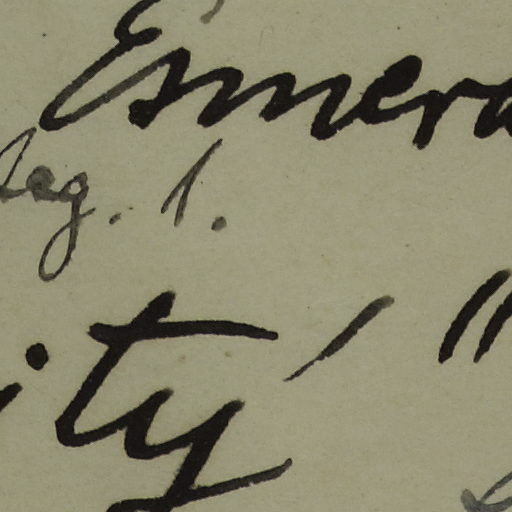 Esmera
leg. 1.
ity' "